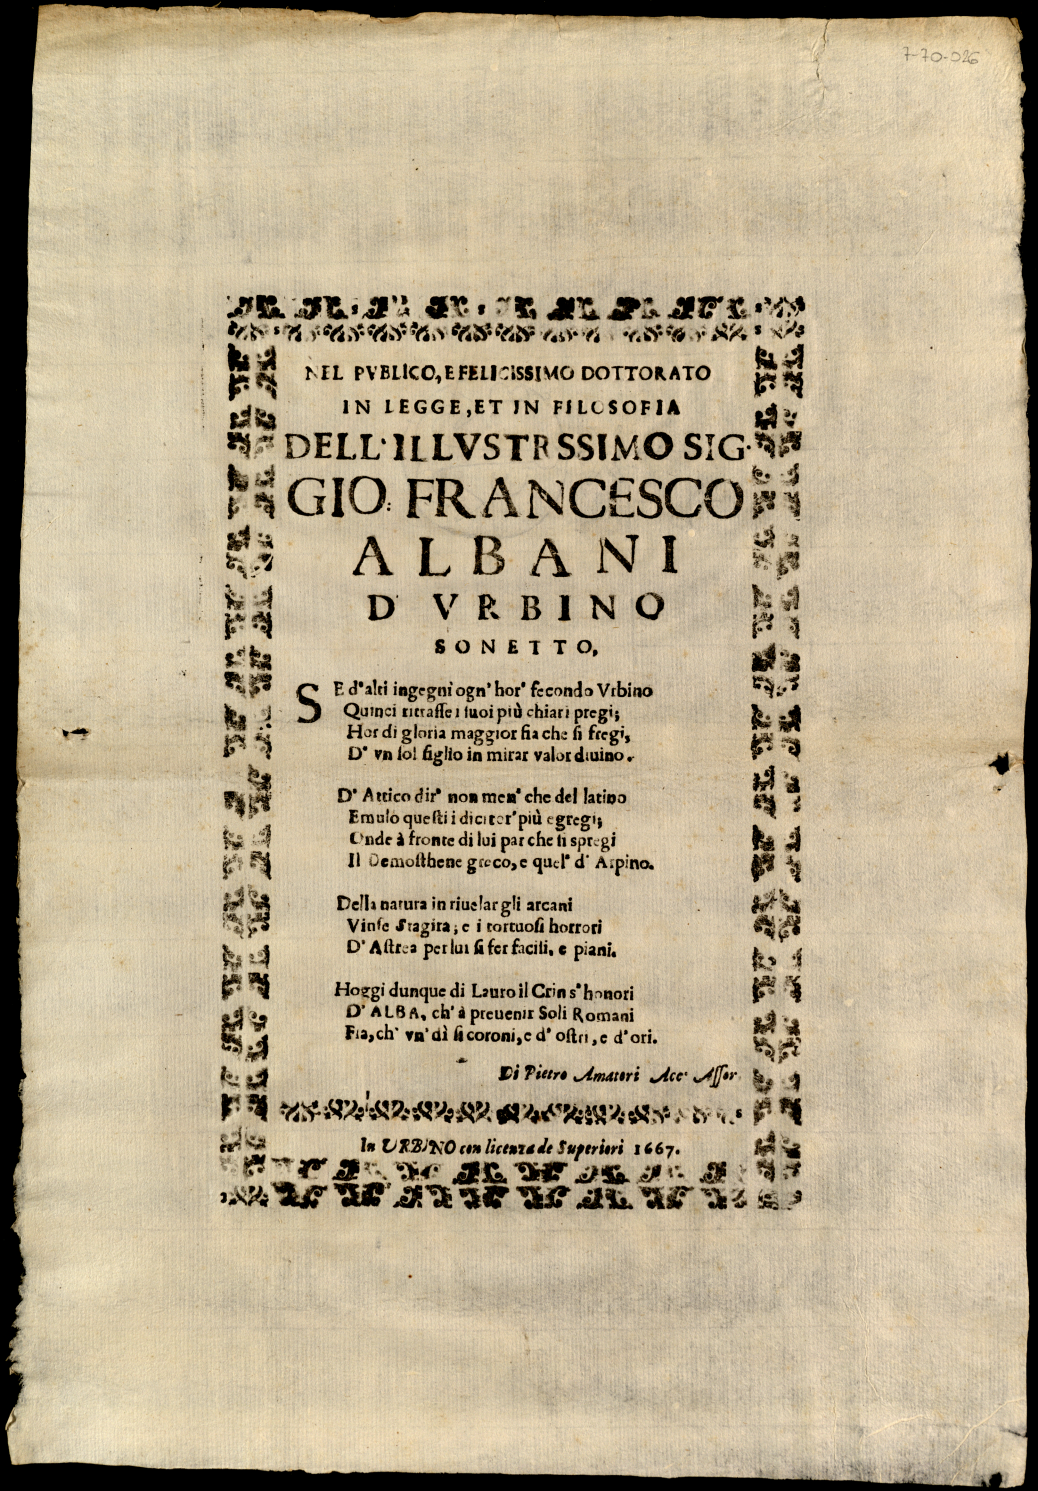 7-70-026
NEL PVBLICO, E FELICISSIMO DOTTORATO
IN LEGGE, ET IN FILOSOFIA
DELL'ILLVSTRSSIMO SIG.
GIO: FRANCESCO
ALBANI
D VRBINO
SONETTO,
SE d'alti ingegni ogn' hor' fecondo Vrbino
Quinci ritrasse i suoi più chiari pregi;
Hor di gloria maggior fia che si fregi,
D' vn sol figlio in mirar valor diuino.
D' Attico dir' non men' che del latino
Emulo questi i dicitor' più egregi;
Onde à fronte di lui par che si spregi
Il Demosthene greco, e quel' d' Arpino.
Della natura in riuelar gli arcani
Vinse Stagira; e i tortuosi horrori
D' Astrea per lui si fer facili, e piani.
Hoggi dunque di Lauro il Crin s' honori
D' ALBA, ch' à preuenir Soli Romani
Fia, ch' vn' dì si coroni, e d' ostri, e d' ori.
Di Pietro Amatori Acc. Assor.
In URBINO con licenza de Superiori 1667.